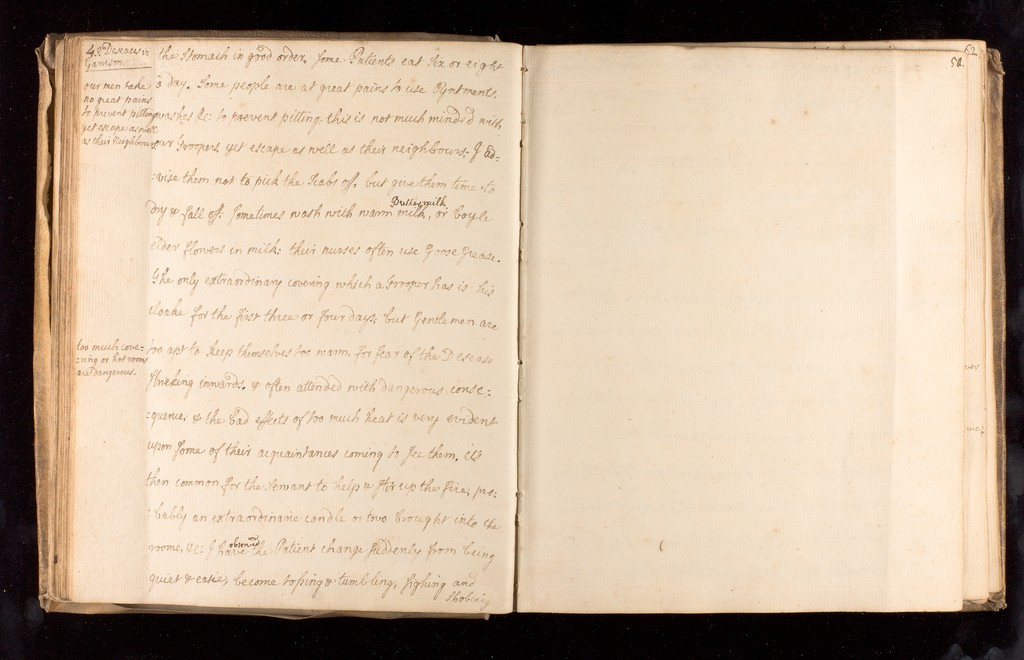 4. Deseases in
Garrison.
the Stomach in good order, some Patients eat six or eight
our men take
no great pains
to prevent pitting
yet escape as well
as their Neighbours
a day. Some people are at great pains to use Oyntments,
washes &c: to prevent pitting, this is not much minded with
our Troopers, yet escape as well as their neighbours: I ad-
:vise them not to pick the scabs off, but give them time to
Buttermilk
dry & fall off: sometimes wash with warm milk, or boyle
elder flowers in milk: their nurses often use Goose Grease.
The only extraordinary covering which a Trooper has is his
cloake for the first three or four days: but Gentlemen are
too much cove-
:ring or hot rooms
are dangerous.
too apt to keep themselves too warm, for fear of the Desease
striking inwards, & often attended with dangerous conse-
:quence; & the bad effects of too much heat is very evident
upon some of their acquaintances coming to see them, its
then common for the servant to help & stir up the fire, pro-
:bably an extraordinarie candle or two brought into the
observed
roome, &c: I have the Patient change suddenly from being
quiet & easie, become tossing & tumbling, sighing and
Shobing
52.
58.